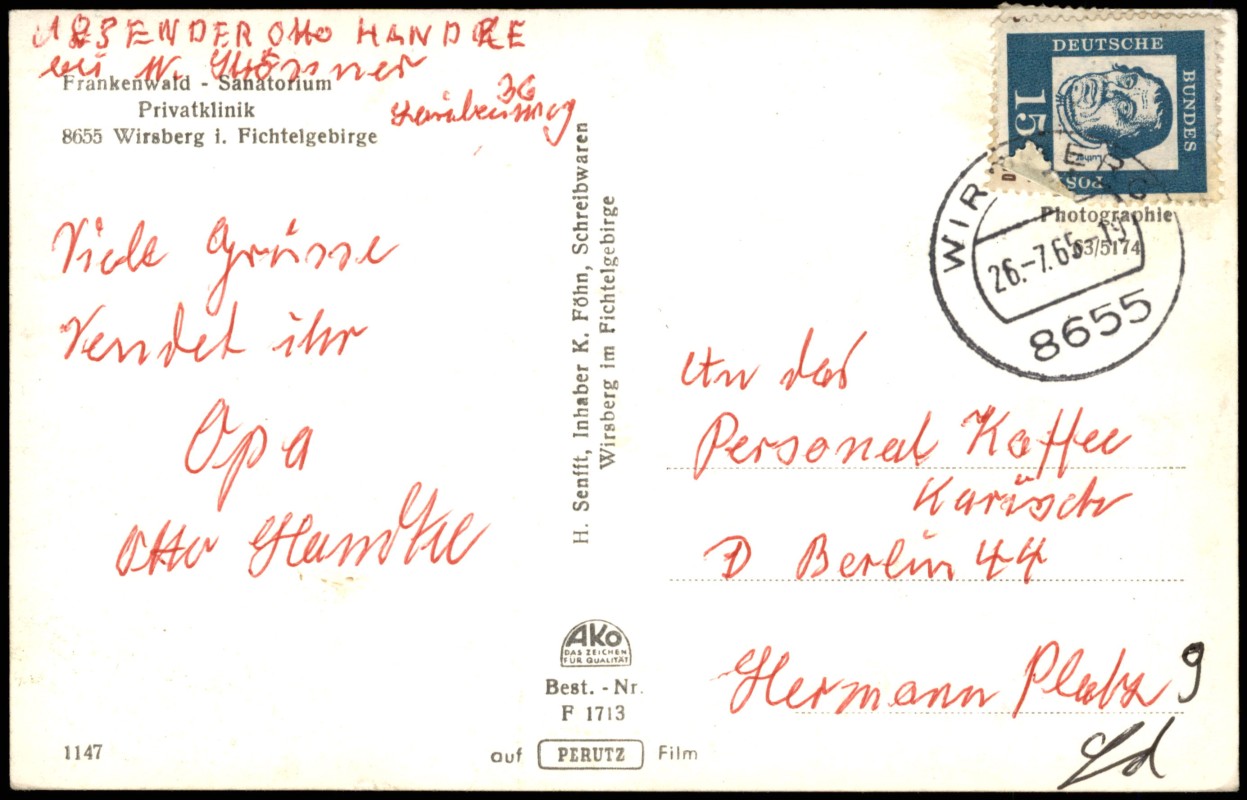 ABSENDER OTTO HANDKE
bei W.
36
Frankenwald - Sanatorium
Privatklinik
8655 Wirsberg i. Fichtelgebirge
Viele Grüsse
sendet ihr
Opa
Otto Handke
1147
H. Senfft, Inhaber K. Föhn, Schreibwaren
Wirsberg im Fichtelgebirge
AKO
DAS ZEICHEN
FÜR QUALITÄT
Best. - Nr.
F 1713
auf PERUTZ Film
DEUTSCHE
BUNDES
POST
15
Luther
WIRSBERG
26.-7.65-19
8655
Photographie
63/5174
An das
Personal Kaffee
Karüsch
D Berlin 44
Hermann Platz 9